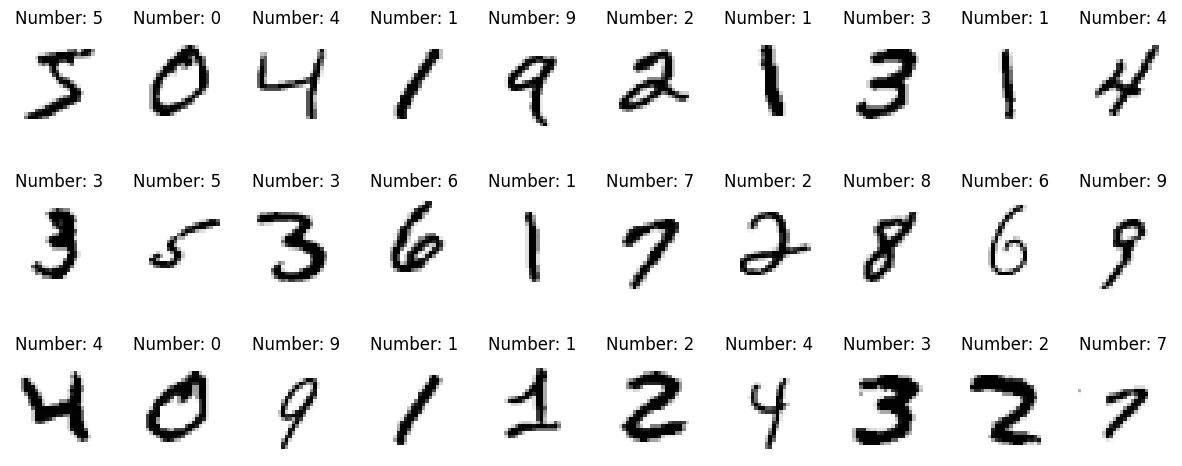 Number: 5 Number: 0 Number: 4 Number: 1 Number: 9 Number: 2 Number: 1 Number: 3 Number: 1 Number: 4
5 0 4 1 9 2 1 3 1 4
Number: 3 Number: 5 Number: 3 Number: 6 Number: 1 Number: 7 Number: 2 Number: 8 Number: 6 Number: 9
3 5 3 6 1 7 2 8 6 9
Number: 4 Number: 0 Number: 9 Number: 1 Number: 1 Number: 2 Number: 4 Number: 3 Number: 2 Number: 7
4 0 9 1 1 2 4 3 2 7